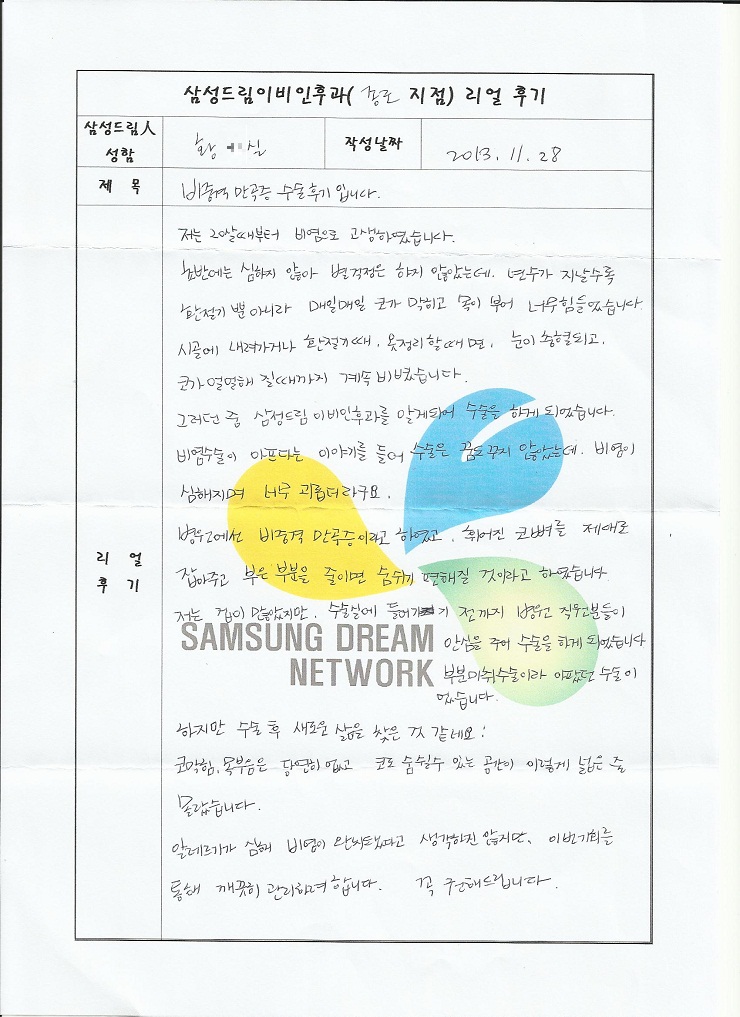 삼성드림이비인후과( 종로 지점) 리얼 후기
삼성드림人 성함
황 실
작성날짜
2013. 11. 28
제 목
비중격 만곡증 수술후기 입니다.
리 얼 후 기
저는 20살때부터 비염으로 고생하였습니다.
초반에는 심하지 않아 별걱정은 하지 않았는데. 년수가 지날수록
환절기 뿐 아니라 매일매일 코가 막히고 목이 부어 너무힘들었습니다.
시골에 내려가거나 환절기때, 옷정리할때면, 눈이 충혈되고,
코가얼얼해 질때까지 계속 비볐습니다.
그러던 중 삼성드림이비인후과를 알게되어 수술을 하게 되었습니다.
비염수술이 아프다는 이야기를 들어 수술은 꿈도꾸지 않았는데. 비염이
심해지며 너무 괴롭더라구요.
병원에서 비중격 만곡증이라고 하였고, 휘어진 코뼈를 제대로
잡아주고 부은부분을 줄이면 숨쉬기 편해질 것이라고 하였습니다.
저는 겁이 많았지만. 수술실에 들어가기 전까지 병원 직원분들이
안심을 주어 수술을 하게 되었습니다
부분마취수술이라 아팠던 수술이
었습니다.
SAMSUNG DREAM
NETWORK
하지만 수술 후 새로운 삶을 찾은 것 같네요!
코막힘, 목부음은 당연히 없고 코로 숨쉴수 있는 공간이 이렇게 넓은 줄
몰랐습니다.
알레르기가 심해 비염이 완치됐다고 생각하진 않지만, 이번기회를
통해 깨끗히 관리하려 합니다. 꼭 추천해드립니다.